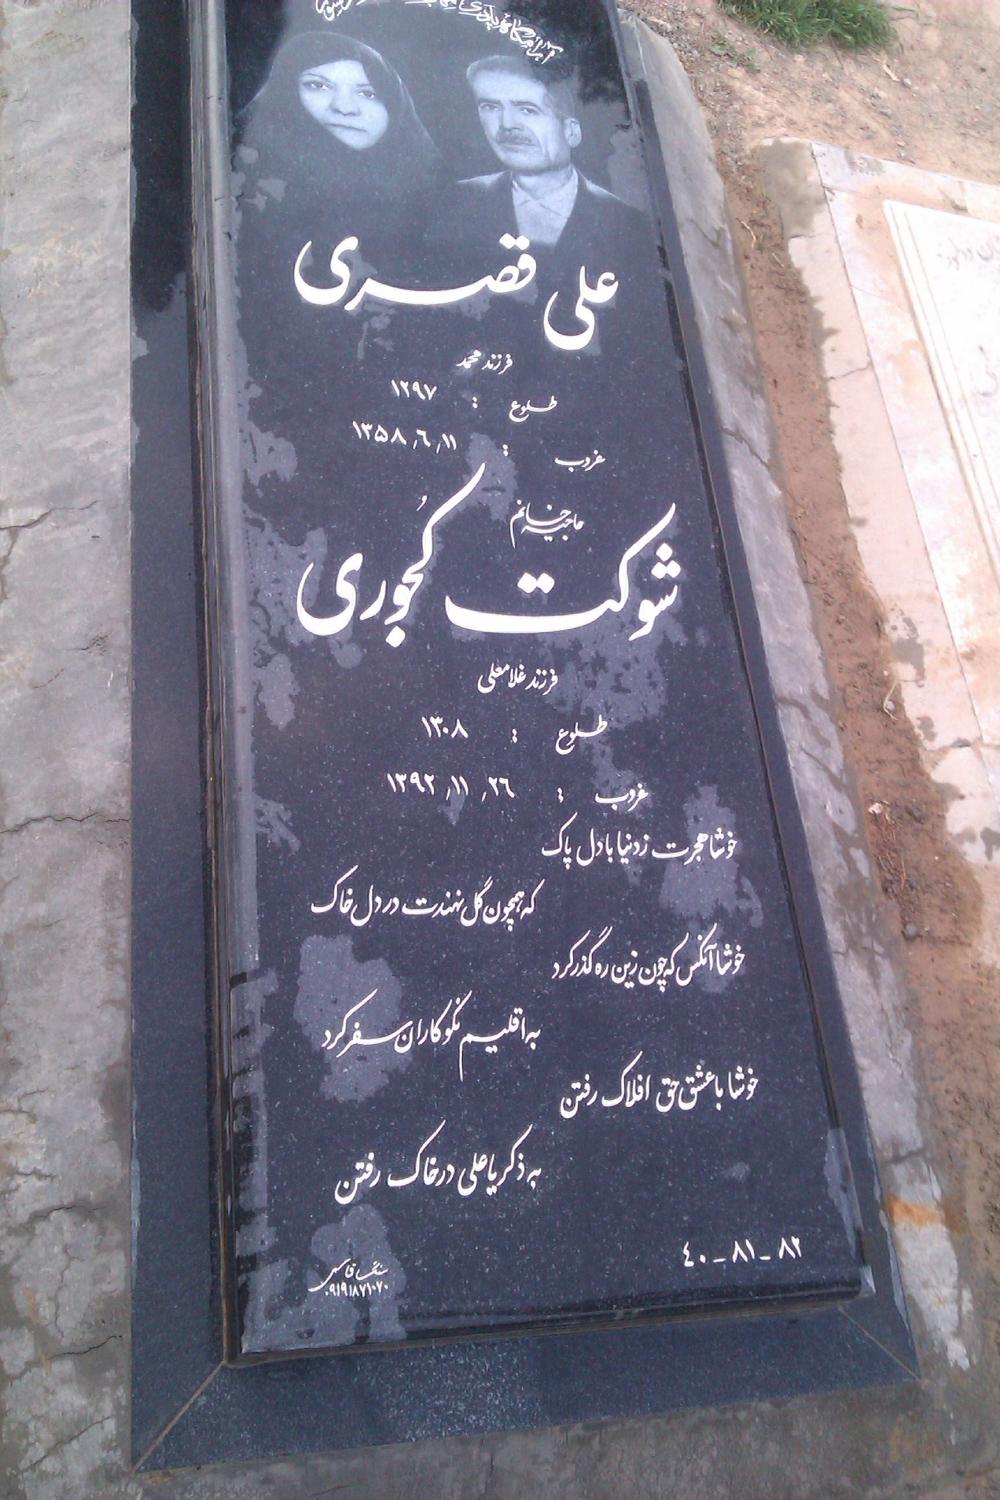 آرامگاه پدری
علی قصری
فرزند محمد
طلوع : ۱۲۹۷
غروب : ۱۳۵۸٫۶٫۱۱
حاجیه خانم
شوکت کُجوری
فرزند غلامعلی
طلوع : ۱۳۰۸
غروب : ۱۳۹۲٫۱۱٫۲۶
خوشا هجرت ز دنیا با دل پاک
که همچون گل نهندت در دل خاک
خوشا آنکس که چون زین ره گذر کرد
به اقلیم نکوکاران سفر کرد
خوشا با عشق حق افلاک رفتن
به ذکر یا علی در خاک رفتن
۴۰-۸۱-۸۲
سنگ قاسمی
۰۹۱۹۱۸۷۱۰۷۰